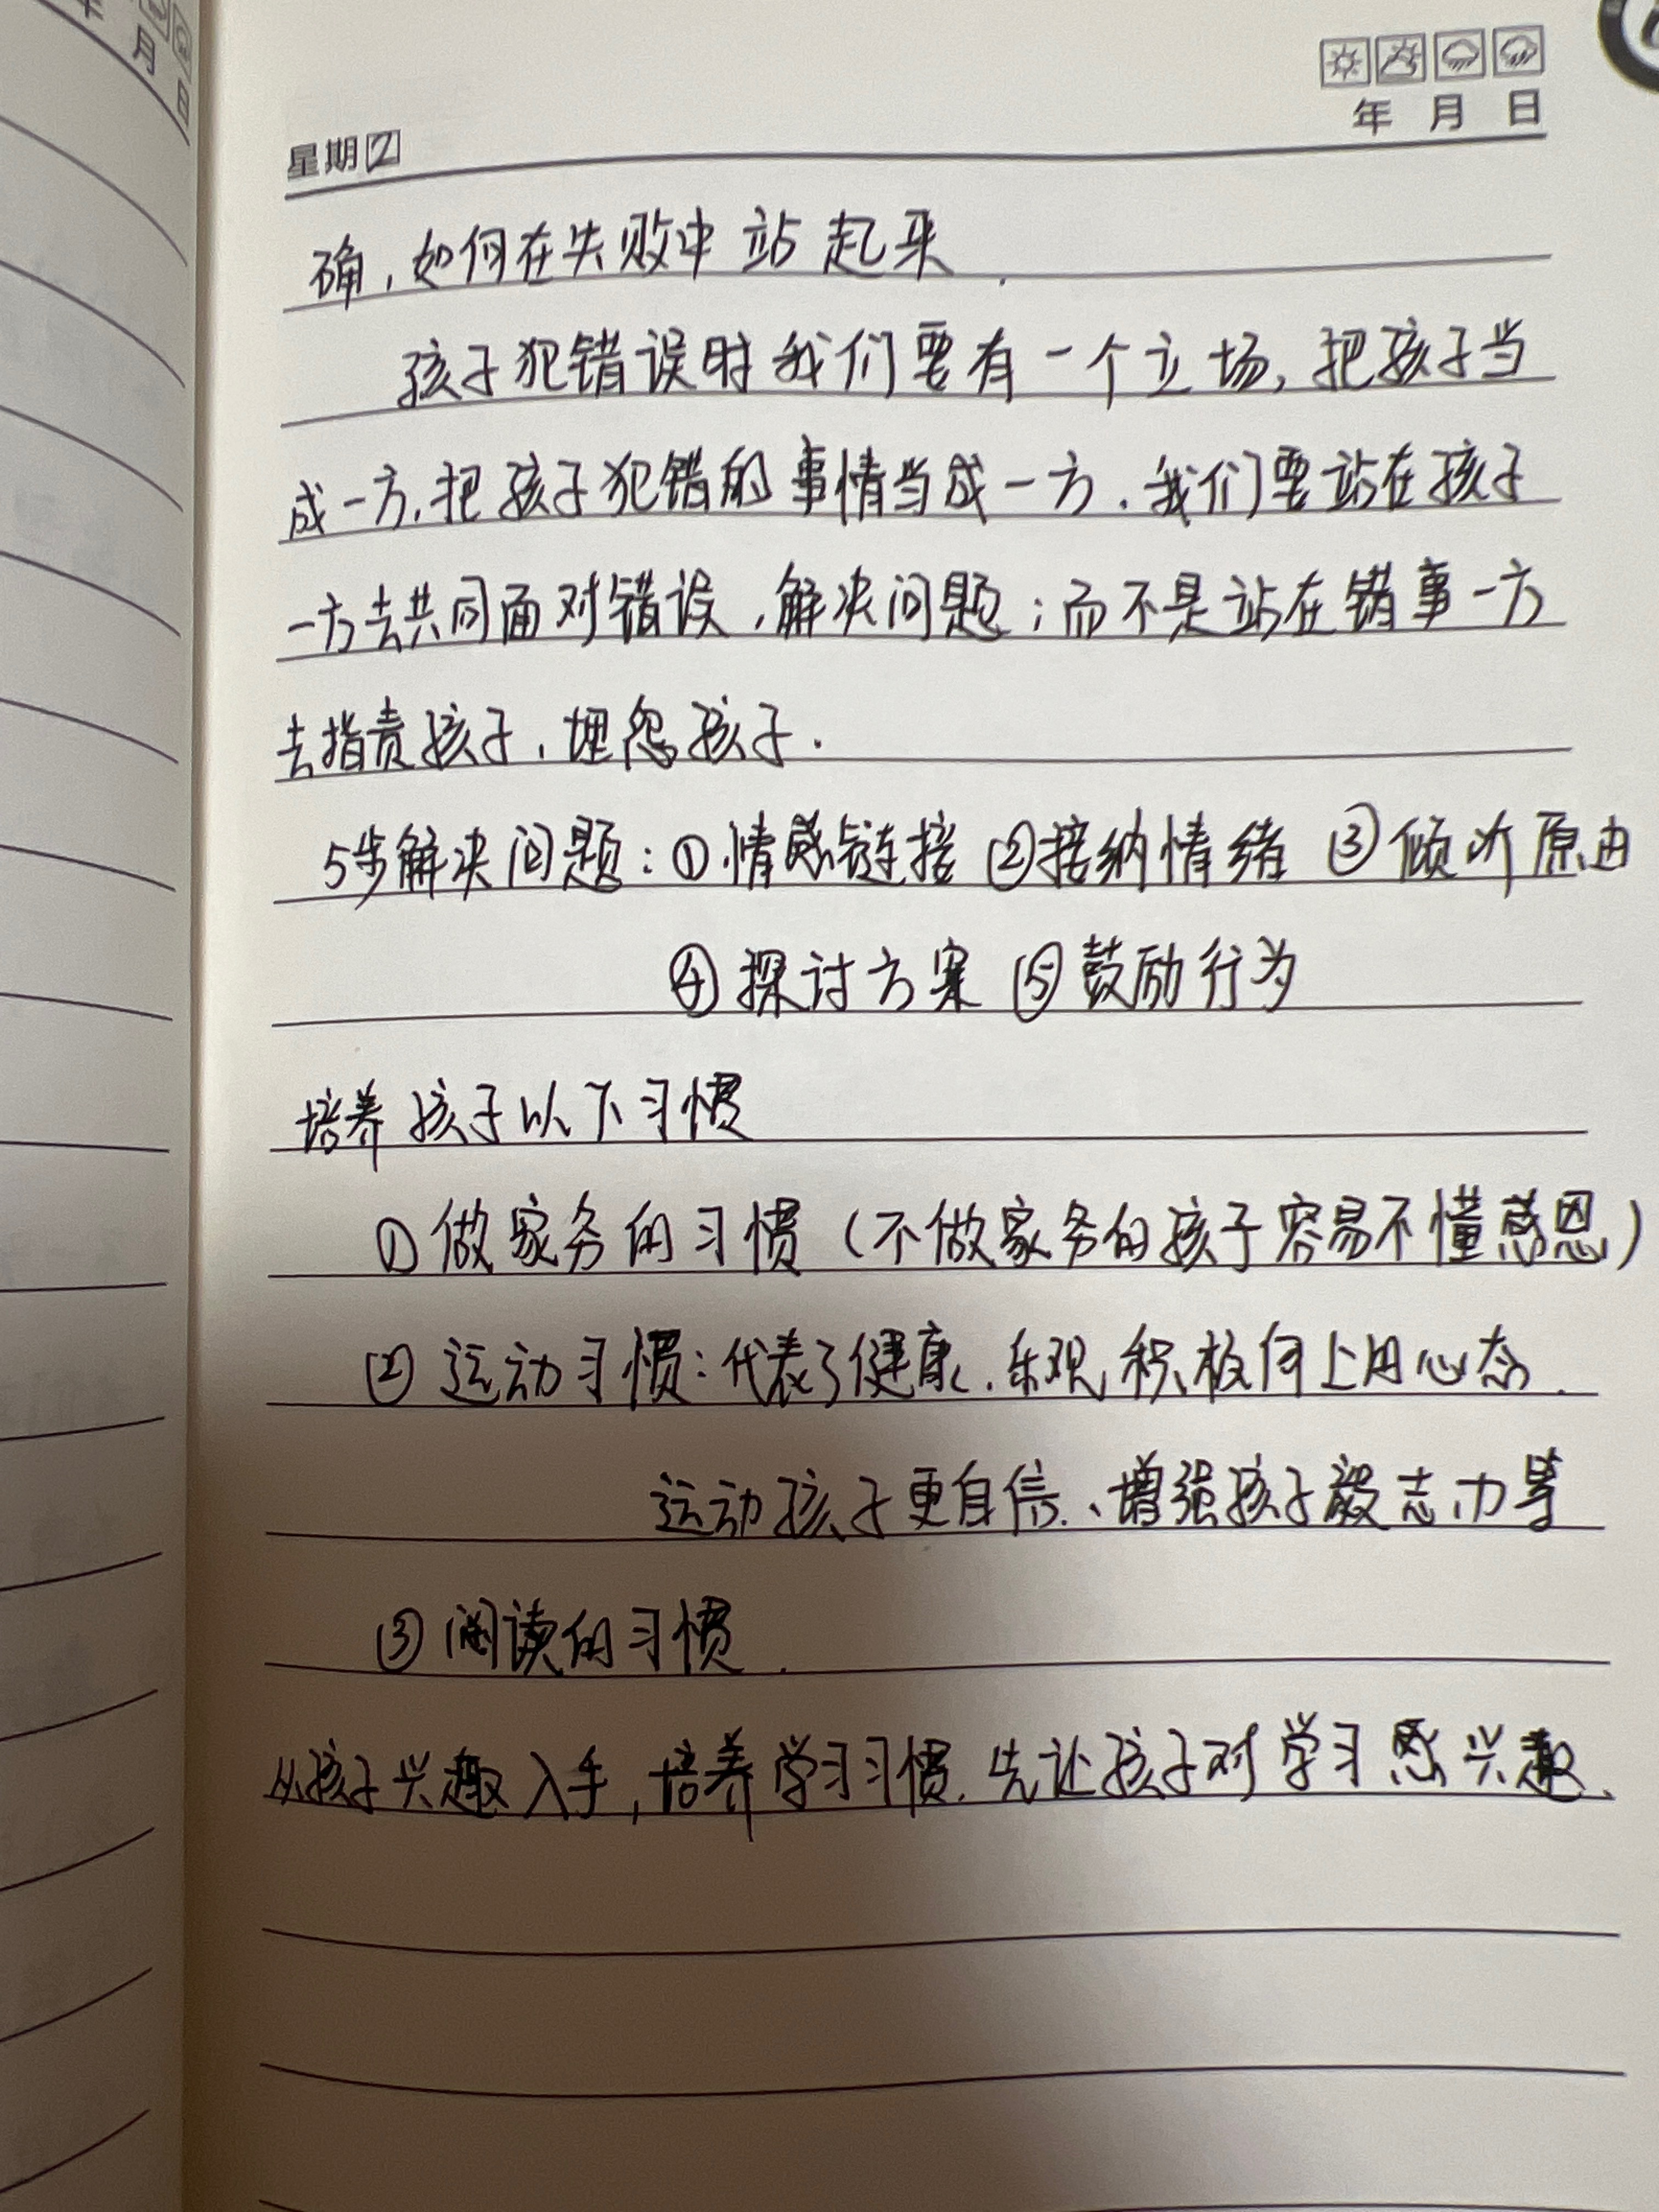 月
日
年 月 日
星期
确，如何在失败中站起来.
孩子犯错误时我们要有一个立场，把孩子当
成一方，把孩子犯错的事情当成一方.我们要站在孩子
一方去共同面对错误，解决问题；而不是站在错事一方
去指责孩子，埋怨孩子.
5步解决问题：①情感链接 ②接纳情绪 ③倾听原由
④探讨方案 ⑤鼓励行为
培养孩子以下习惯
①做家务的习惯（不做家务的孩子容易不懂感恩）
②运动习惯：代表了健康、乐观，积极向上的心态.
运动孩子更自信、增强孩子毅志力等
③阅读的习惯.
从孩子兴趣入手，培养学习习惯.先让孩子对学习感兴趣、